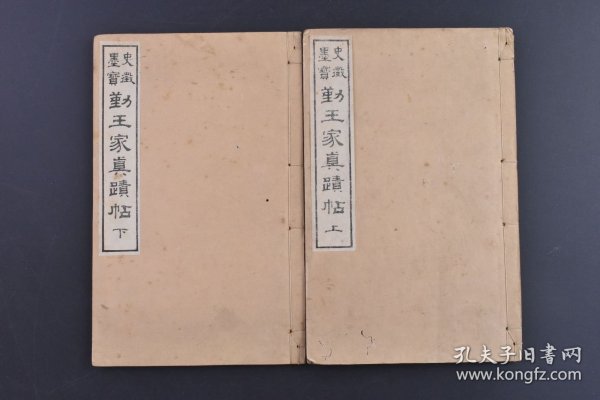 史徵墨寶
勤王家真蹟帖
上
史徵墨寶
勤王家真蹟帖
下
孔夫子旧书网
www.kongfz.com